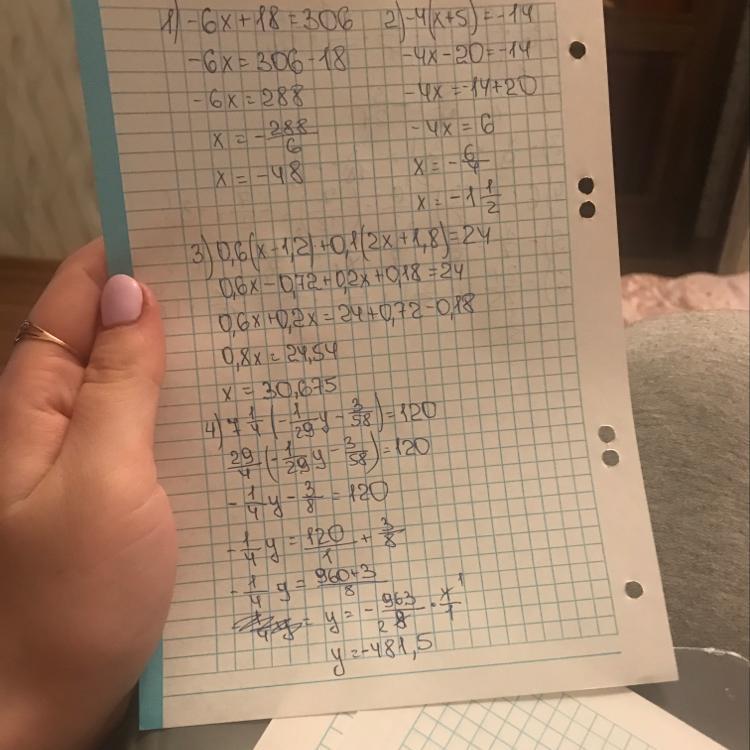 1) -6x+18=306
-6x=306-18
-6x=288
x = -288/6
x = -48
2) -4(x+5)=-14
-4x-20=-14
-4x=-14+20
-4x=6
x = -6/4
x = -1 1/2
3) 0,6(x-1,2)+0,1(2x+1,8)=24
0,6x-0,72+0,2x+0,18=24
0,6x+0,2x=24+0,72-0,18
0,8x=24,54
x = 30,675
4) 7 1/4 (-1/29 y - 3/58)=120
29/4 (-1/29 y - 3/58)=120
-1/4 y - 3/8 = 120
-1/4 y = 120/1 + 3/8
-1/4 y = 960+3/8
= y = -963/8 2 · 4/1 1
y=-481,5